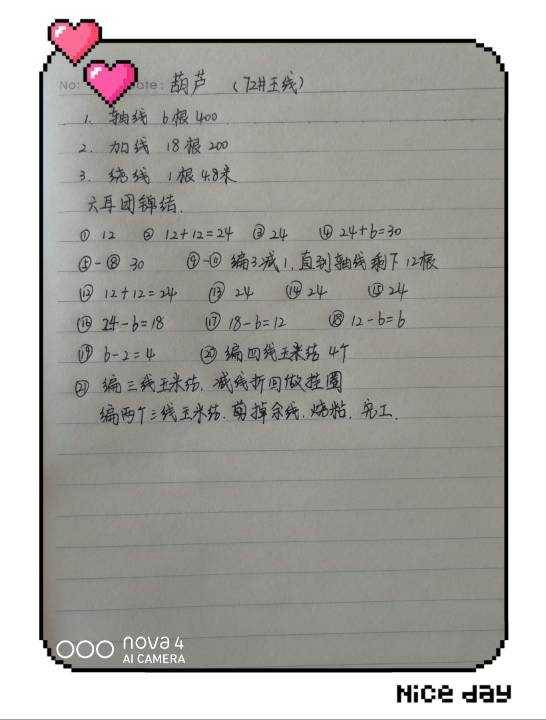 No: ate: 葫芦 (72#玉线)
1. 轴线 6根 400
2. 加线 18根 200
3. 绕线 1根 4.8米
六耳团锦结.
① 12 ② 12+12=24 ③ 24 ④ 24+6=30
⑤-⑧ 30 ⑨-⑪ 编3减1,直到轴线剩下12根
⑫ 12+12=24 ⑬ 24 ⑭ 24 ⑮ 24
⑯ 24-6=18 ⑰ 18-6=12 ⑱ 12-6=6
⑲ 6-2=4 ⑳ 编四线玉米结 4个
㉑ 编三线玉米结.减线折回做挂圈
编两个三线玉米结.剪掉余线.烧粘.完工.
nova 4
AI CAMERA
Nice day